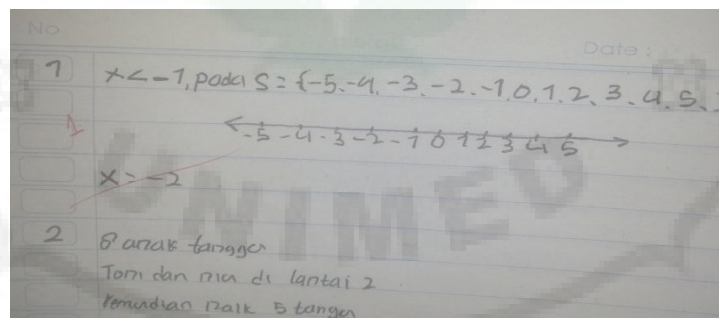 No
Date :
1 x < -1, pada S = {-5, -4, -3, -2, -1, 0, 1, 2, 3, 4, 5,
1
-5 -4 -3 -2 -1 0 1 2 3 4 5
x = -2
2 8 anak tangga
Tom dan nia di lantai 2
Kemudian naik 5 tangga
UNIMED